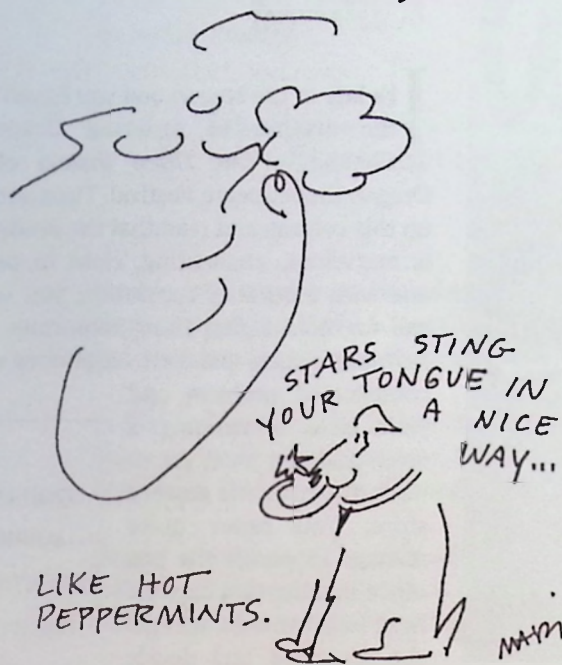 STARS STING
YOUR TONGUE IN
A NICE
WAY...
LIKE HOT
PEPPERMINTS.